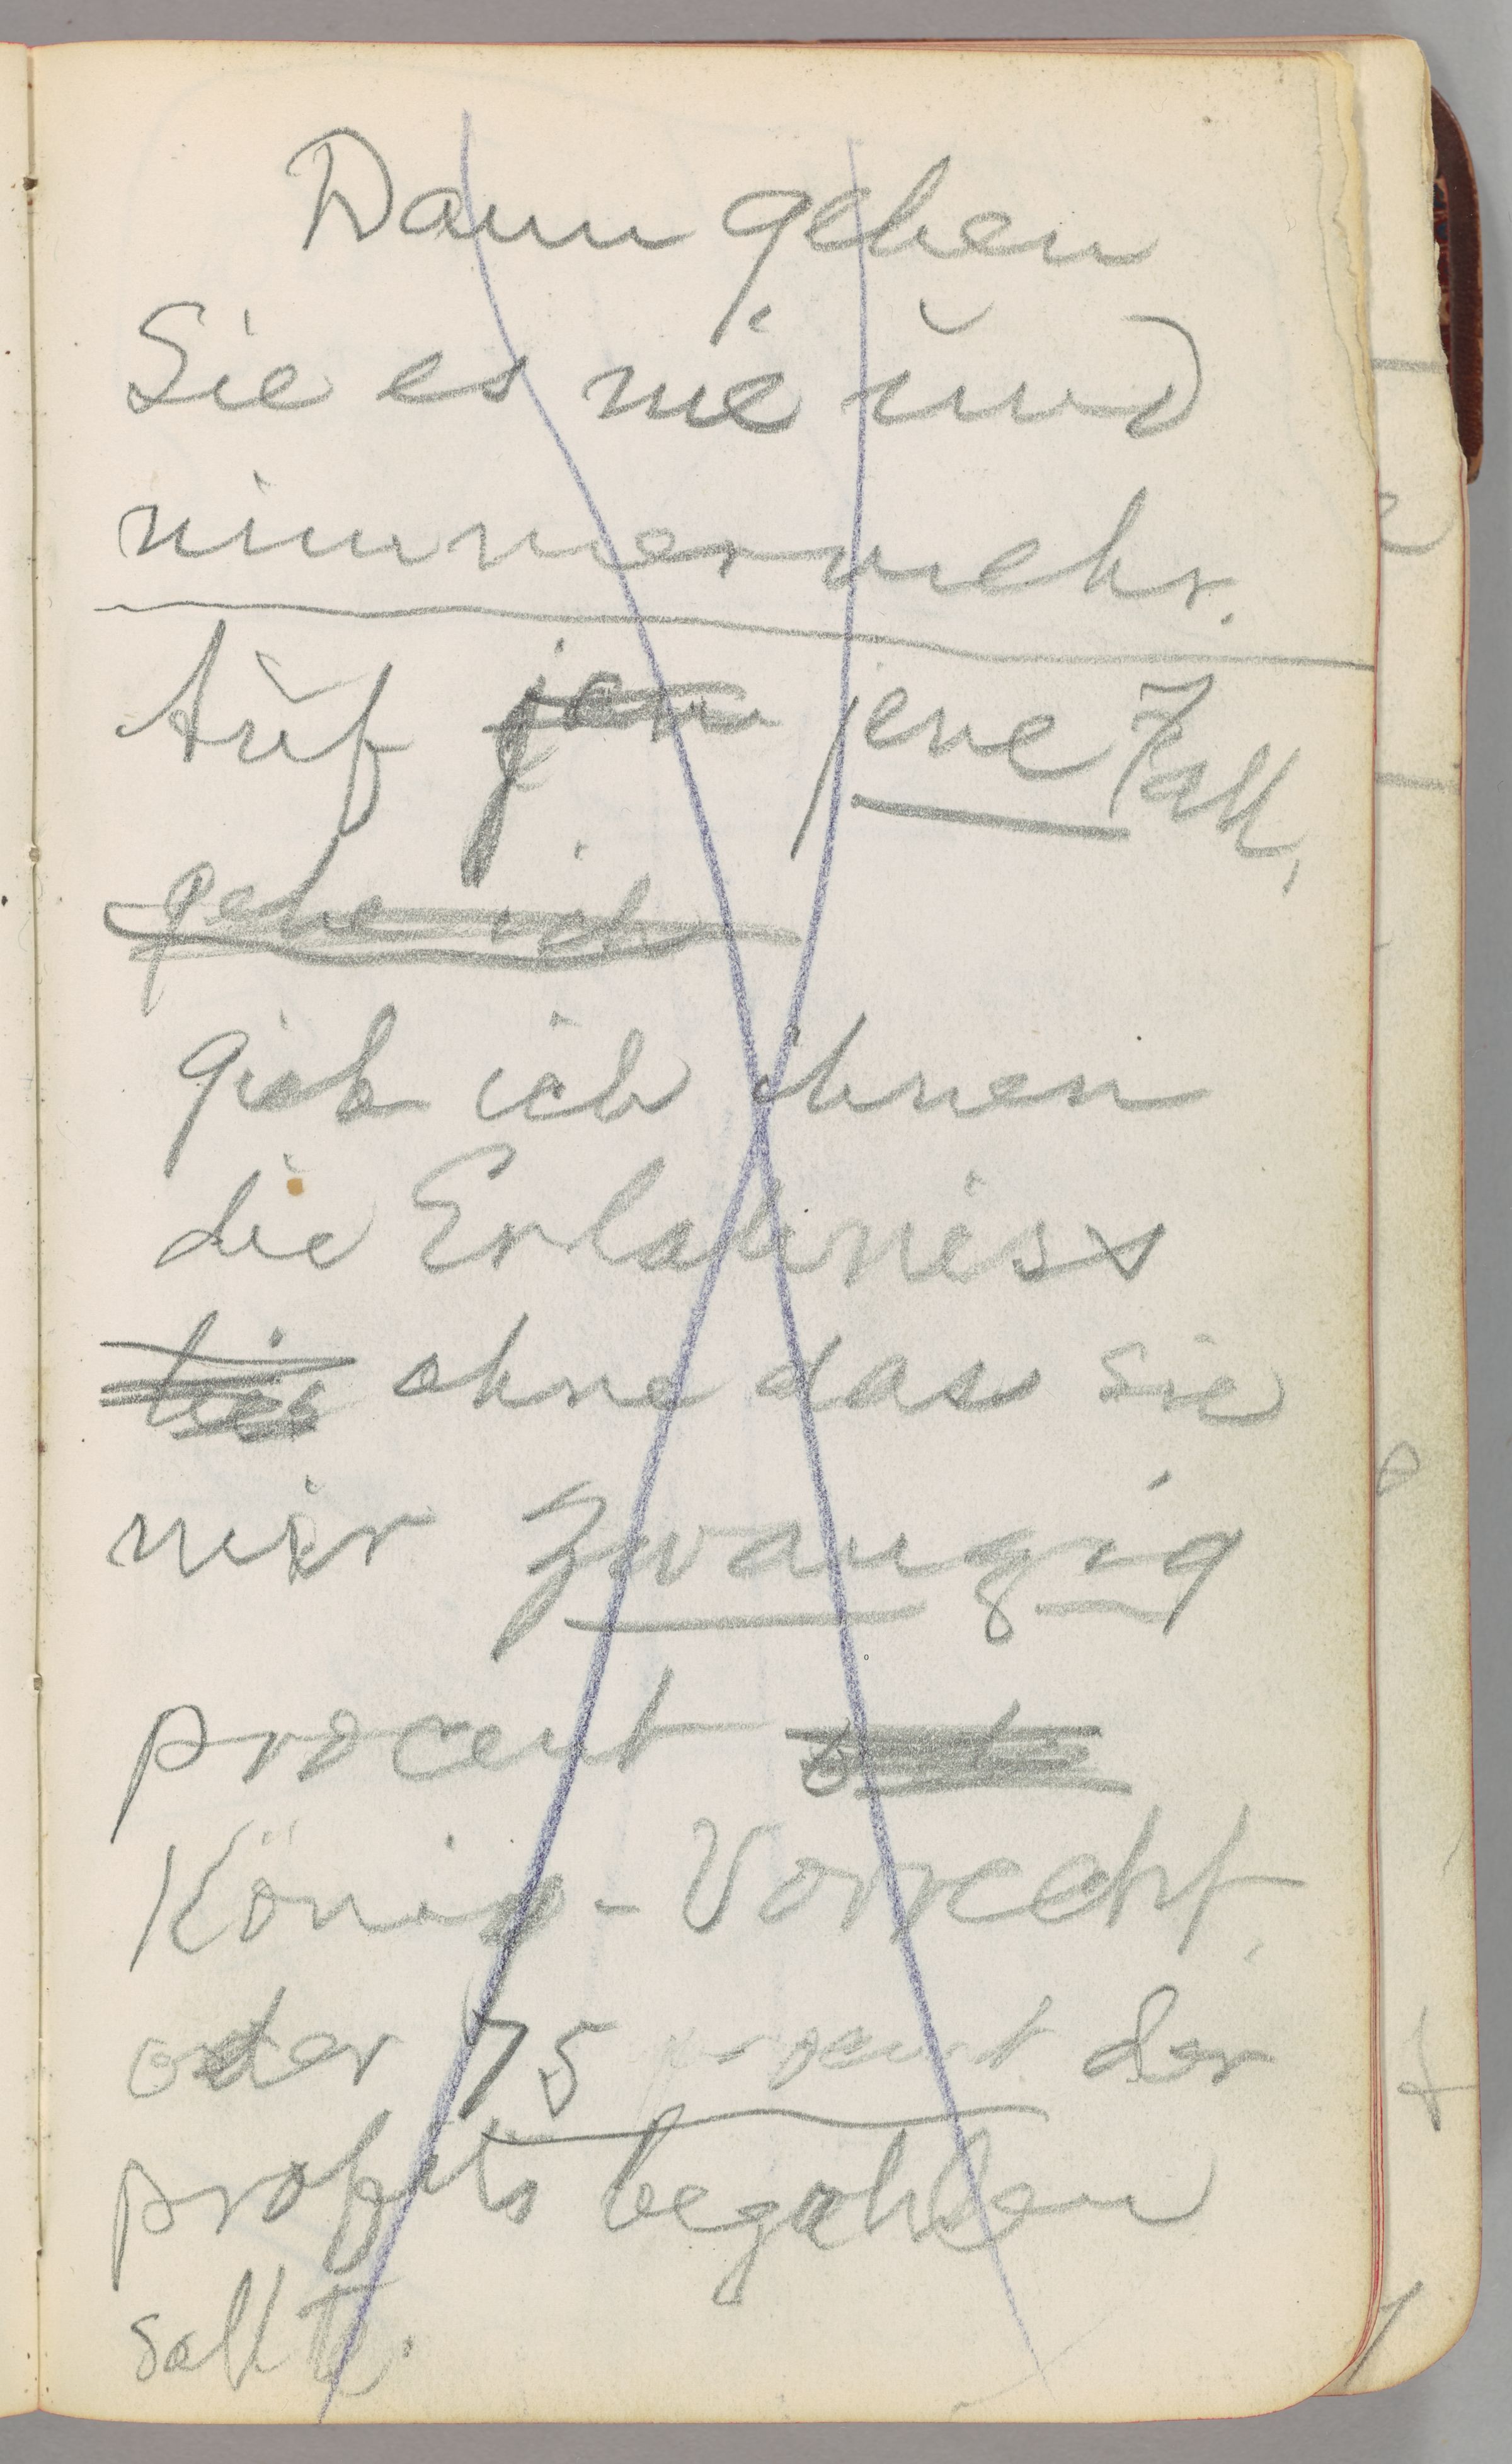 Dann geben
Sie es nie und
nimmermehr.
Auf jen jene Fall,
gebe ich
gieb ich ihnen
die Erlabniss
bis ohne dass sie
mir zwanzig
procent
König-Vorrecht,
oder 75 procent der
profits bezahlen
sollte.